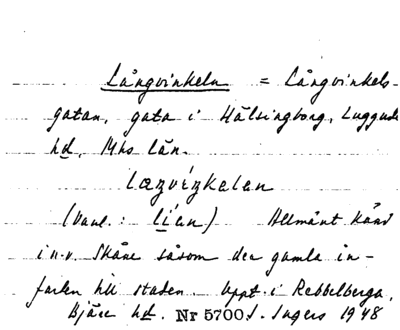 Långvinkeln = Långvinkels-
gatan, gata i Hälsingborg, Luggude
hd, Mhs län.
(Vanl.: ) Allmänt känd
i n.v. Skåne såsom den gamla in-
farten till staden. Uppt. i Rebbelberga,
Bjäre hd. Nr 5700. I. Ingers 1948